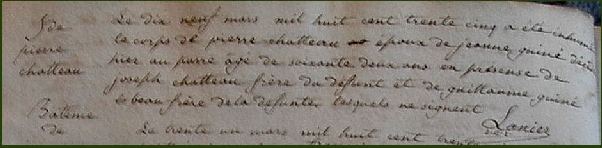 S de
pierre
chatteau
Le dix neuf mars mil huit cent trente cinq a été inhumé
le corps de pierre chatteau époux de jeanne guiné décédé
hier au parre âgé de soixante deux ans en présence de
joseph chatteau frère du défunt et de guillaume guiné
le beau frère de la défunte, lesquels ne signent
Lanier
Bateme
de
Le trente un mars mil huit cent trente